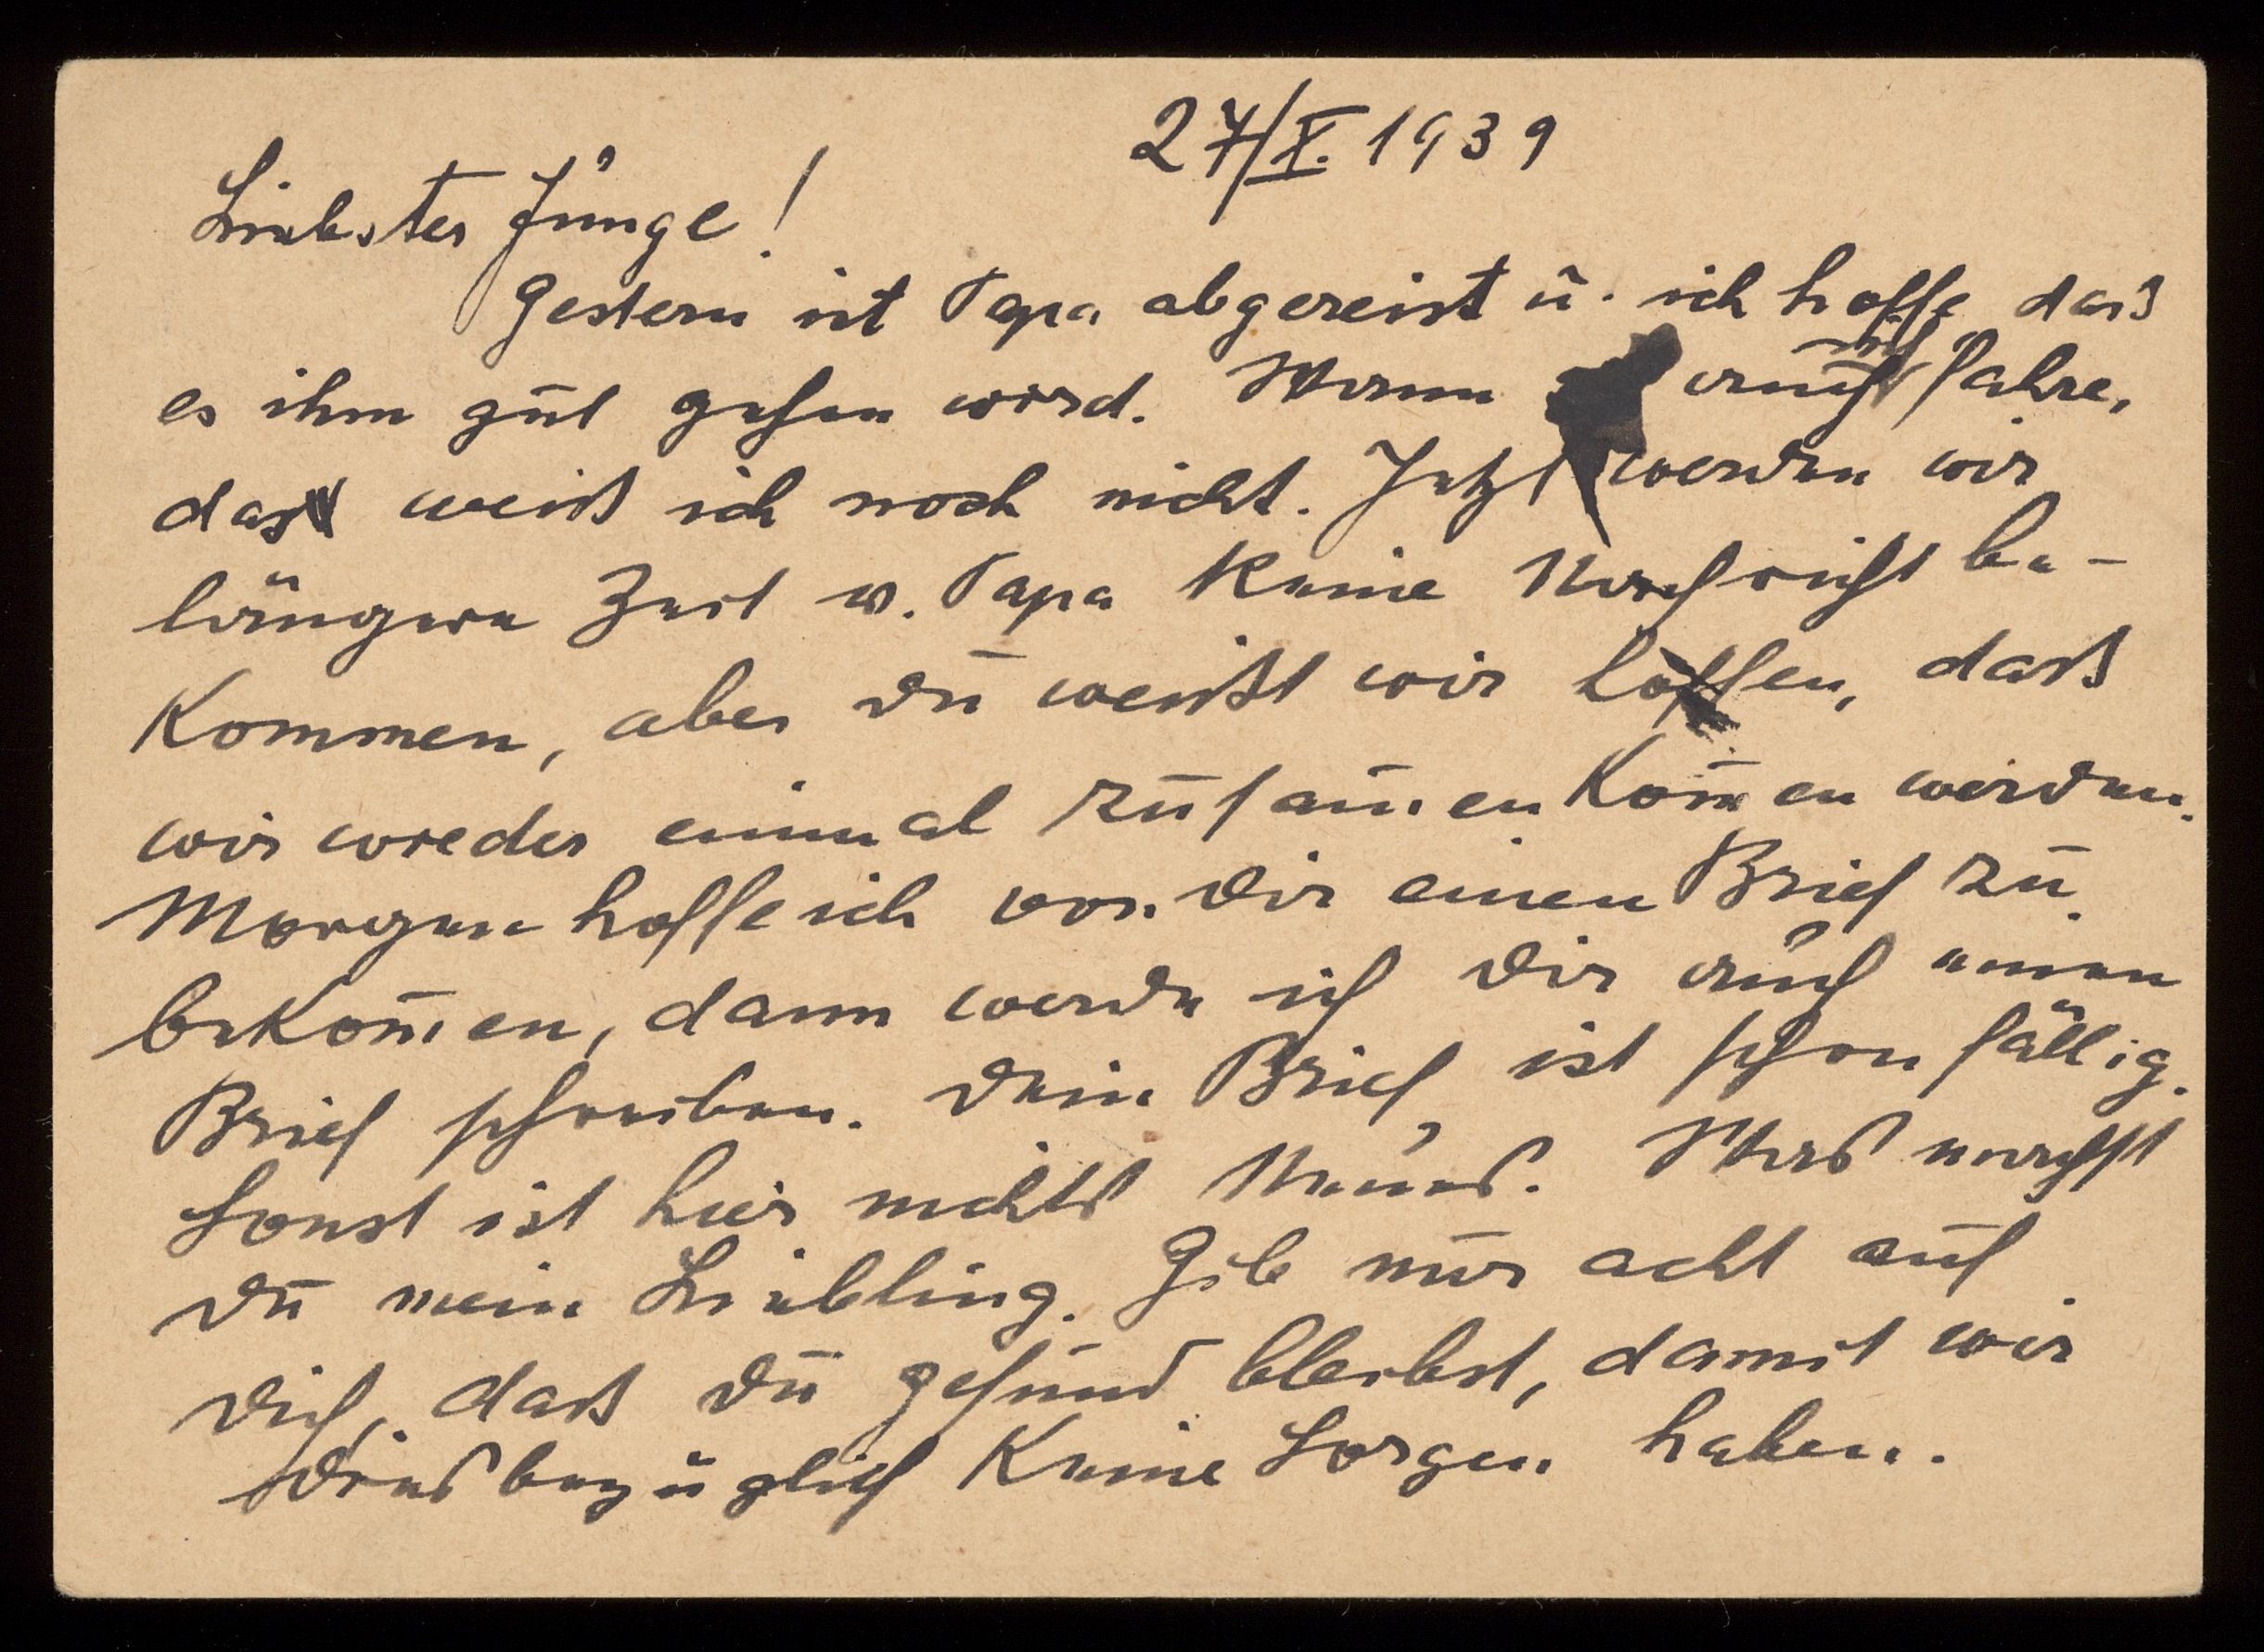 27/X. 1939
Liebster Junge!
Gestern ist Papa abgereist u. ich hoffe dass
es ihm gut gehen wird. Wann auch fahre,
das weiß ich noch nicht. Jetzt werden wir
längere Zeit v. Papa keine Nachricht be-
kommen, aber Du weißt wir hoffen, daß
wir wieder einmal zusam̄en kom̄en werden.
Morgen hoffe ich von Dir einen Brief zu
bekom̄en, dann werde ich Dir auch einen
Brief schreiben. Dein Brief ist schon fällig.
Sonst ist hier nichts Neues. Was machst
Du mein Liebling. Gib nur acht auf
Dich, daß Du gesund bleibst, damit wir
diesbezüglich keine Sorgen haben.